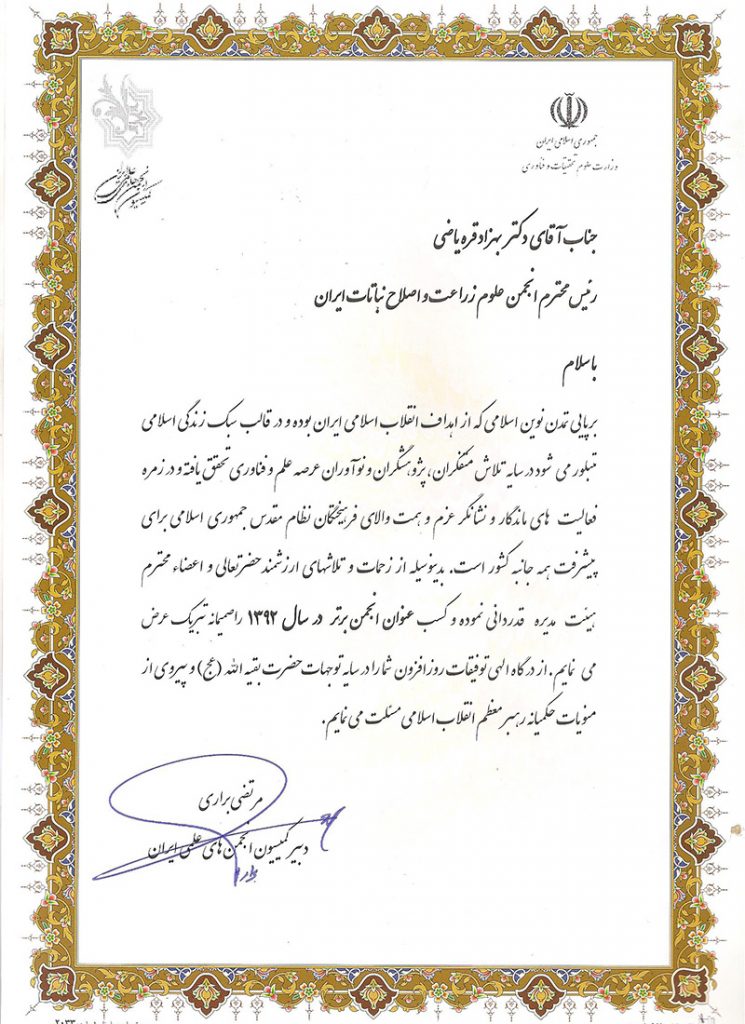 جمهوری اسلامی ایران
وزارت علوم، تحقیقات و فناوری
کمیسیون انجمن‌های علمی ایران
جناب آقای دکتر بهزاد قره یاضی
رئیس محترم انجمن علوم زراعت و اصلاح نباتات ایران
با سلام
برپایی تمدن نوین اسلامی که از اهداف انقلاب اسلامی ایران بوده و در قالب سبک زندگی اسلامی
متبلور می شود در سایه تلاش متفکران، پژوهشگران و نوآوران عرصه علم و فناوری تحقق یافته و در زمره
فعالیت های ماندگار و نشانگر عزم و همت والای فرهیختگان نظام مقدس جمهوری اسلامی برای
پیشرفت همه جانبه کشور است. بدینوسیله از زحمات و تلاشهای ارزشمند حضرتعالی و اعضاء محترم
هیئت مدیره قدردانی نموده و کسب عنوان انجمن برتر در سال ۱۳۹۲ را صمیمانه تبریک عرض
می نمایم. از درگاه الهی توفیقات روز افزون شما را در سایه توجهات حضرت بقیه الله (عج) و پیروی از
منویات حکیمانه رهبر معظم انقلاب اسلامی مسئلت می نمایم.
مرتضی براری
دبیر کمیسیون انجمن های علمی ایران